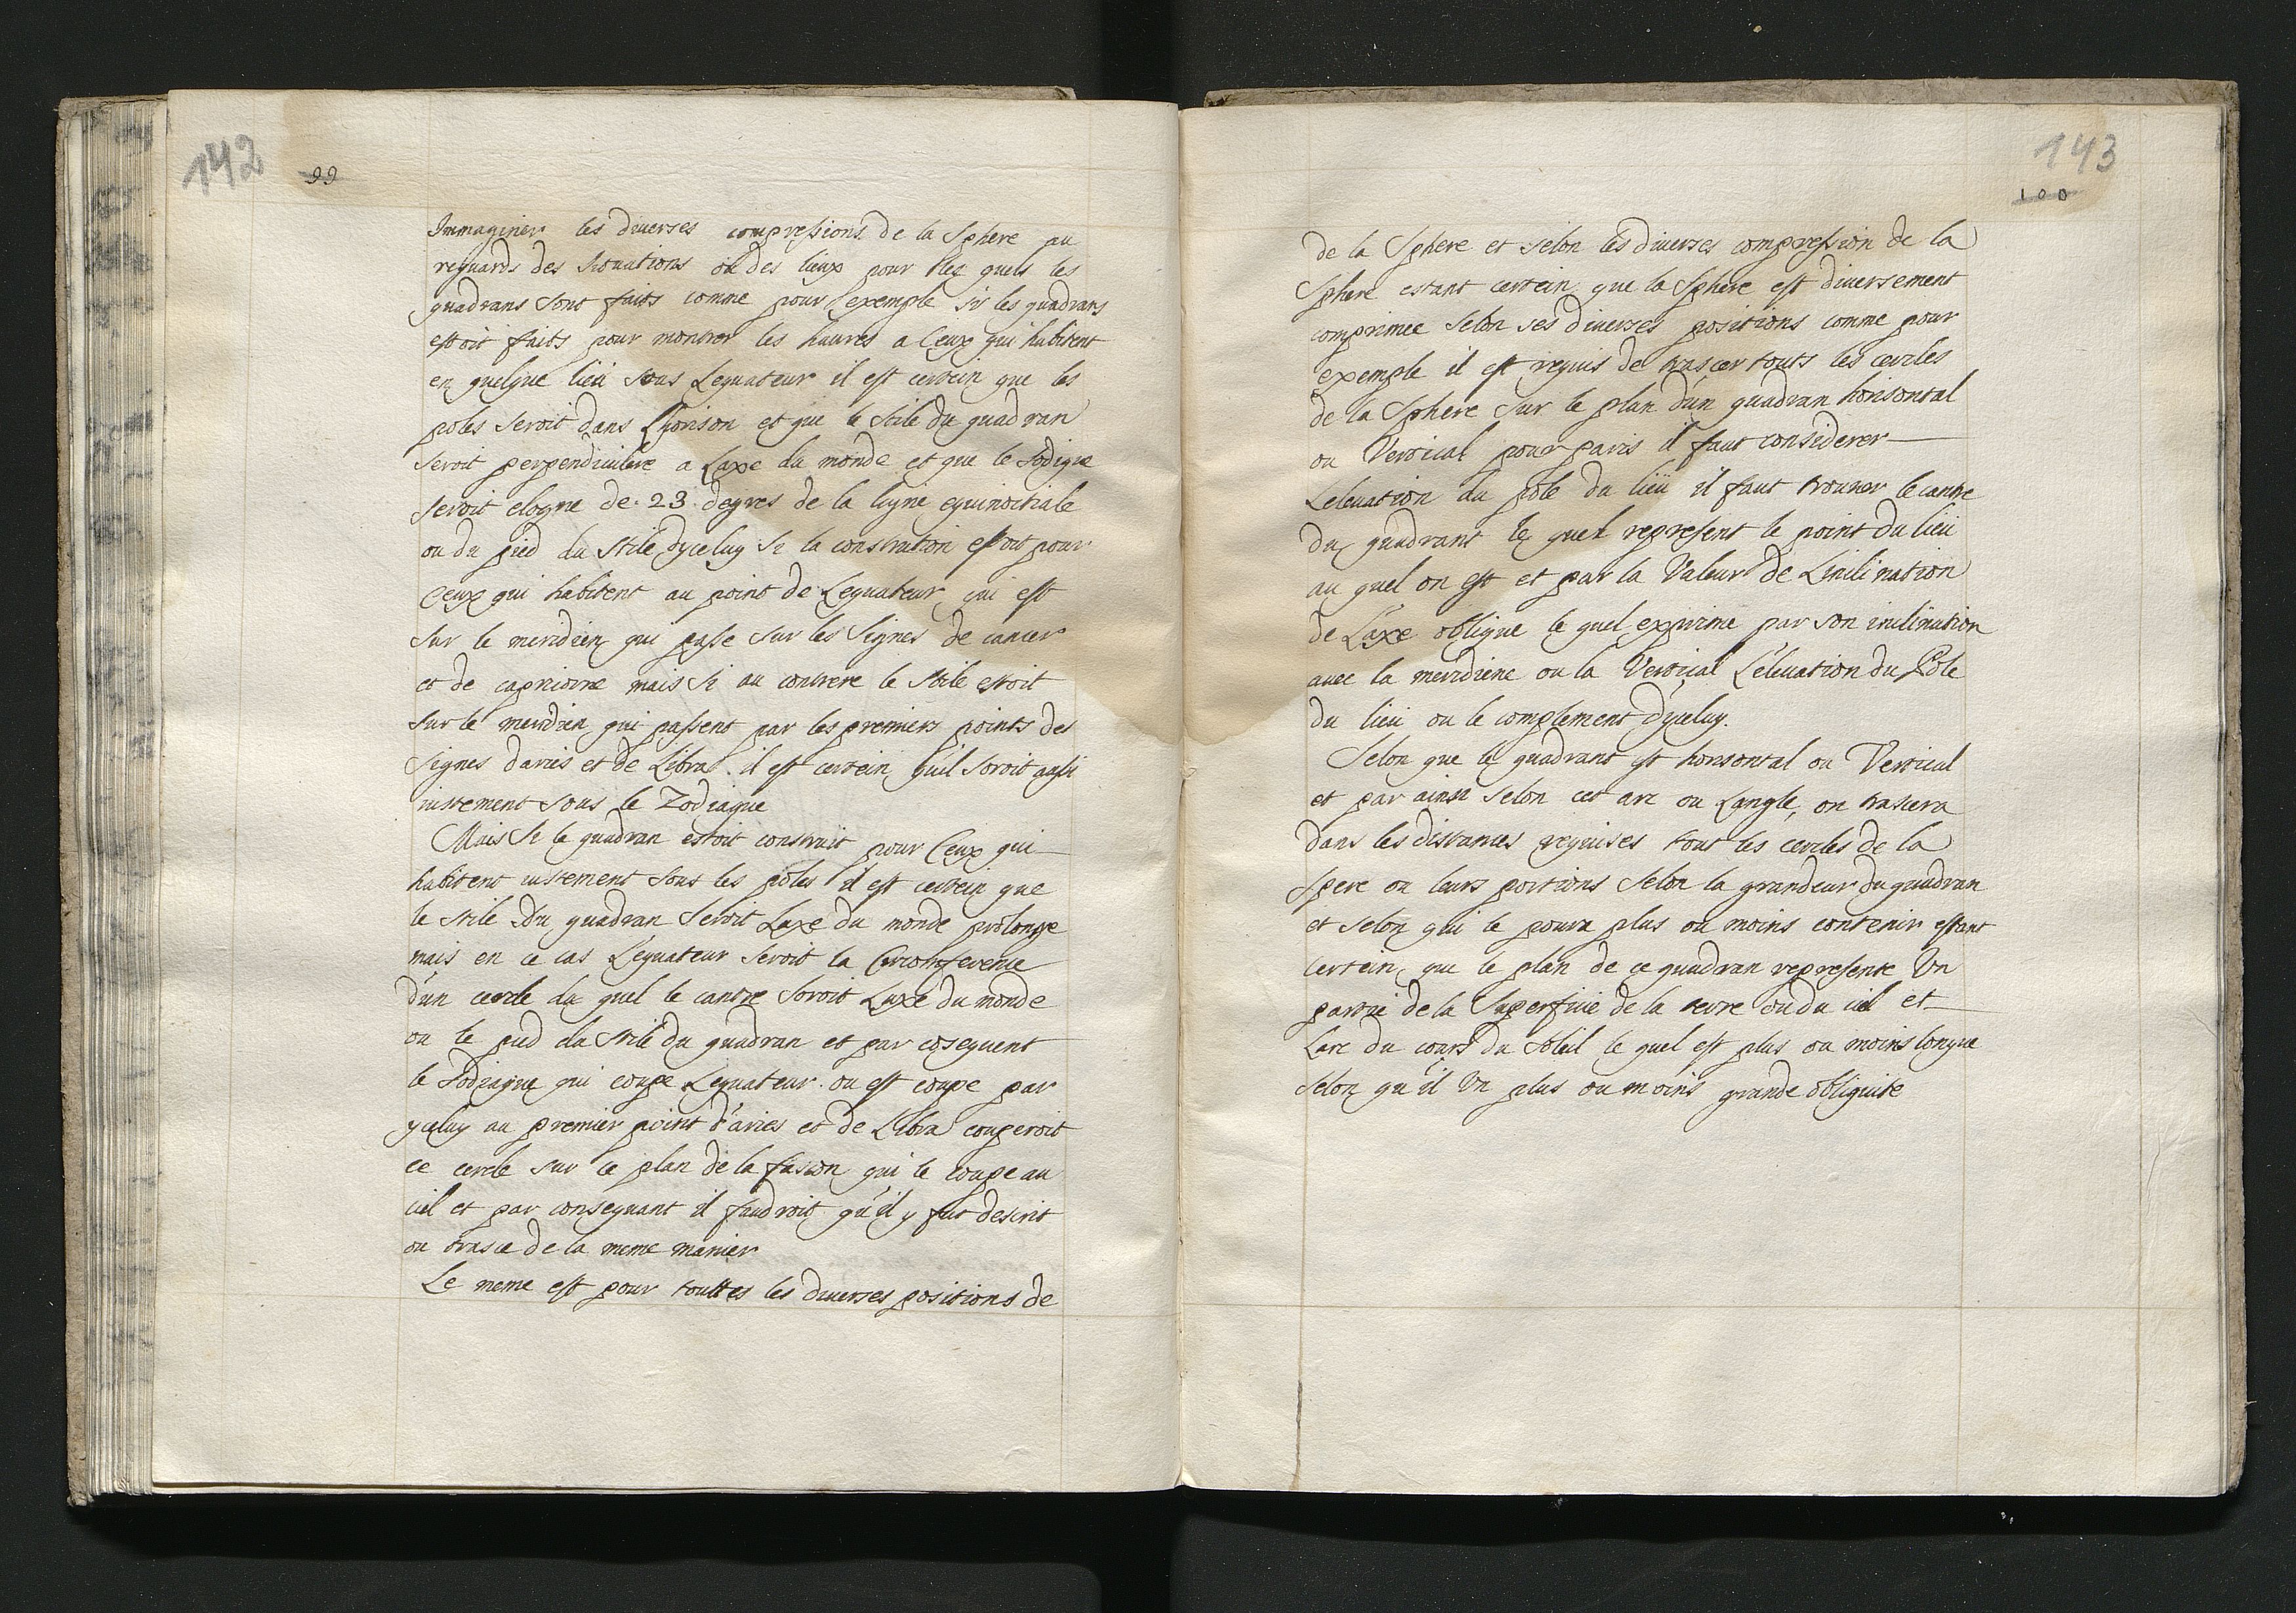 142
99
Immaginer les diuerses compressions de la Sphere au
reguards des situations ou des lieux pour lez quels les
quadrans sont faits comme pour lexemple sis les quadrans
estoit faits pour montrer les heures a Ceux qui habitent
en quelque lieu sous Lequateur il est certein que les
poles seroit dans Lhorison et que le stile du quadran
seroit perpendiculere a Laxe du monde et que le sodique
seroit elogne de 23 degres de la ligne equinoctiale
ou du pied du stile dyceluy si la constration estoit pour
Ceux qui habitent au point de Lequateur qui est
sur le meridein qui passe sur les signes de cancer
et de capricorne mais si au contrere le stile estoit
sur le meridien qui passent par les premiers points des
signes daries et de Libra. il est certein quil seroit ausi
iustement sous le Zodiaque
Mais si le quadran estoit construit pour Ceux qui
habitent iustement sous les poles il est certein que
le stile du quadran seroit Laxe du monde prolonge
mais en ce cas Lequateur seroit la Circomference
d'un cercle du quel le cantre seroit Laxe du monde
ou le pied du stile du quadran et par cosequent
le sodiaque qui coupe Lequateur. ou est coupe par
yceluy au premier point d'aries et de Libra couperoit
ce cercle sur ce plan de la fascon qui le coupe au
ciel et par consequant il faudroit qu'il y fut descrit
ou trasce de la meme manier
Le meme est pour touttes les diuerses positions de
143
100
de la Sphere et selon les diuerses compression de la
Sphere estant certein que la Sphere est diuersement
comprimee selon ses diuerses positions comme pour
exemple il est requis de trascer touts les cercles
de la Sphere sur le plan d'un quadran horisontal
ou Vertical pour paris il faut considerer
Leleuation du pole du lieu il faut trouuer le cantre
du quadrant le quel represent le point du lieu
au quel on est et par la Valeur de Linclination
de Laxe oblique le quel exprime par son inclination
auec la meridiene ou la Vertical L'eleuation du Pole
du lieu ou le complement d'yceluy.
Selon que le quadrant est horisontal ou Vertical
et par ainsi selon cet arc ou Langle, on trascera
dans les distances requises tout les cercles de la
spere ou leurs portions selon la grandeur du quadran
et selon qui le poura plus ou moins contenir estant
certein que le plan de ce quadran represente Un
partie de la superficie de la terre ou du ciel et
Larc du cours du soleil le quel est plus ou moins longue
selon qu'il Un plus ou moins grande obliquite